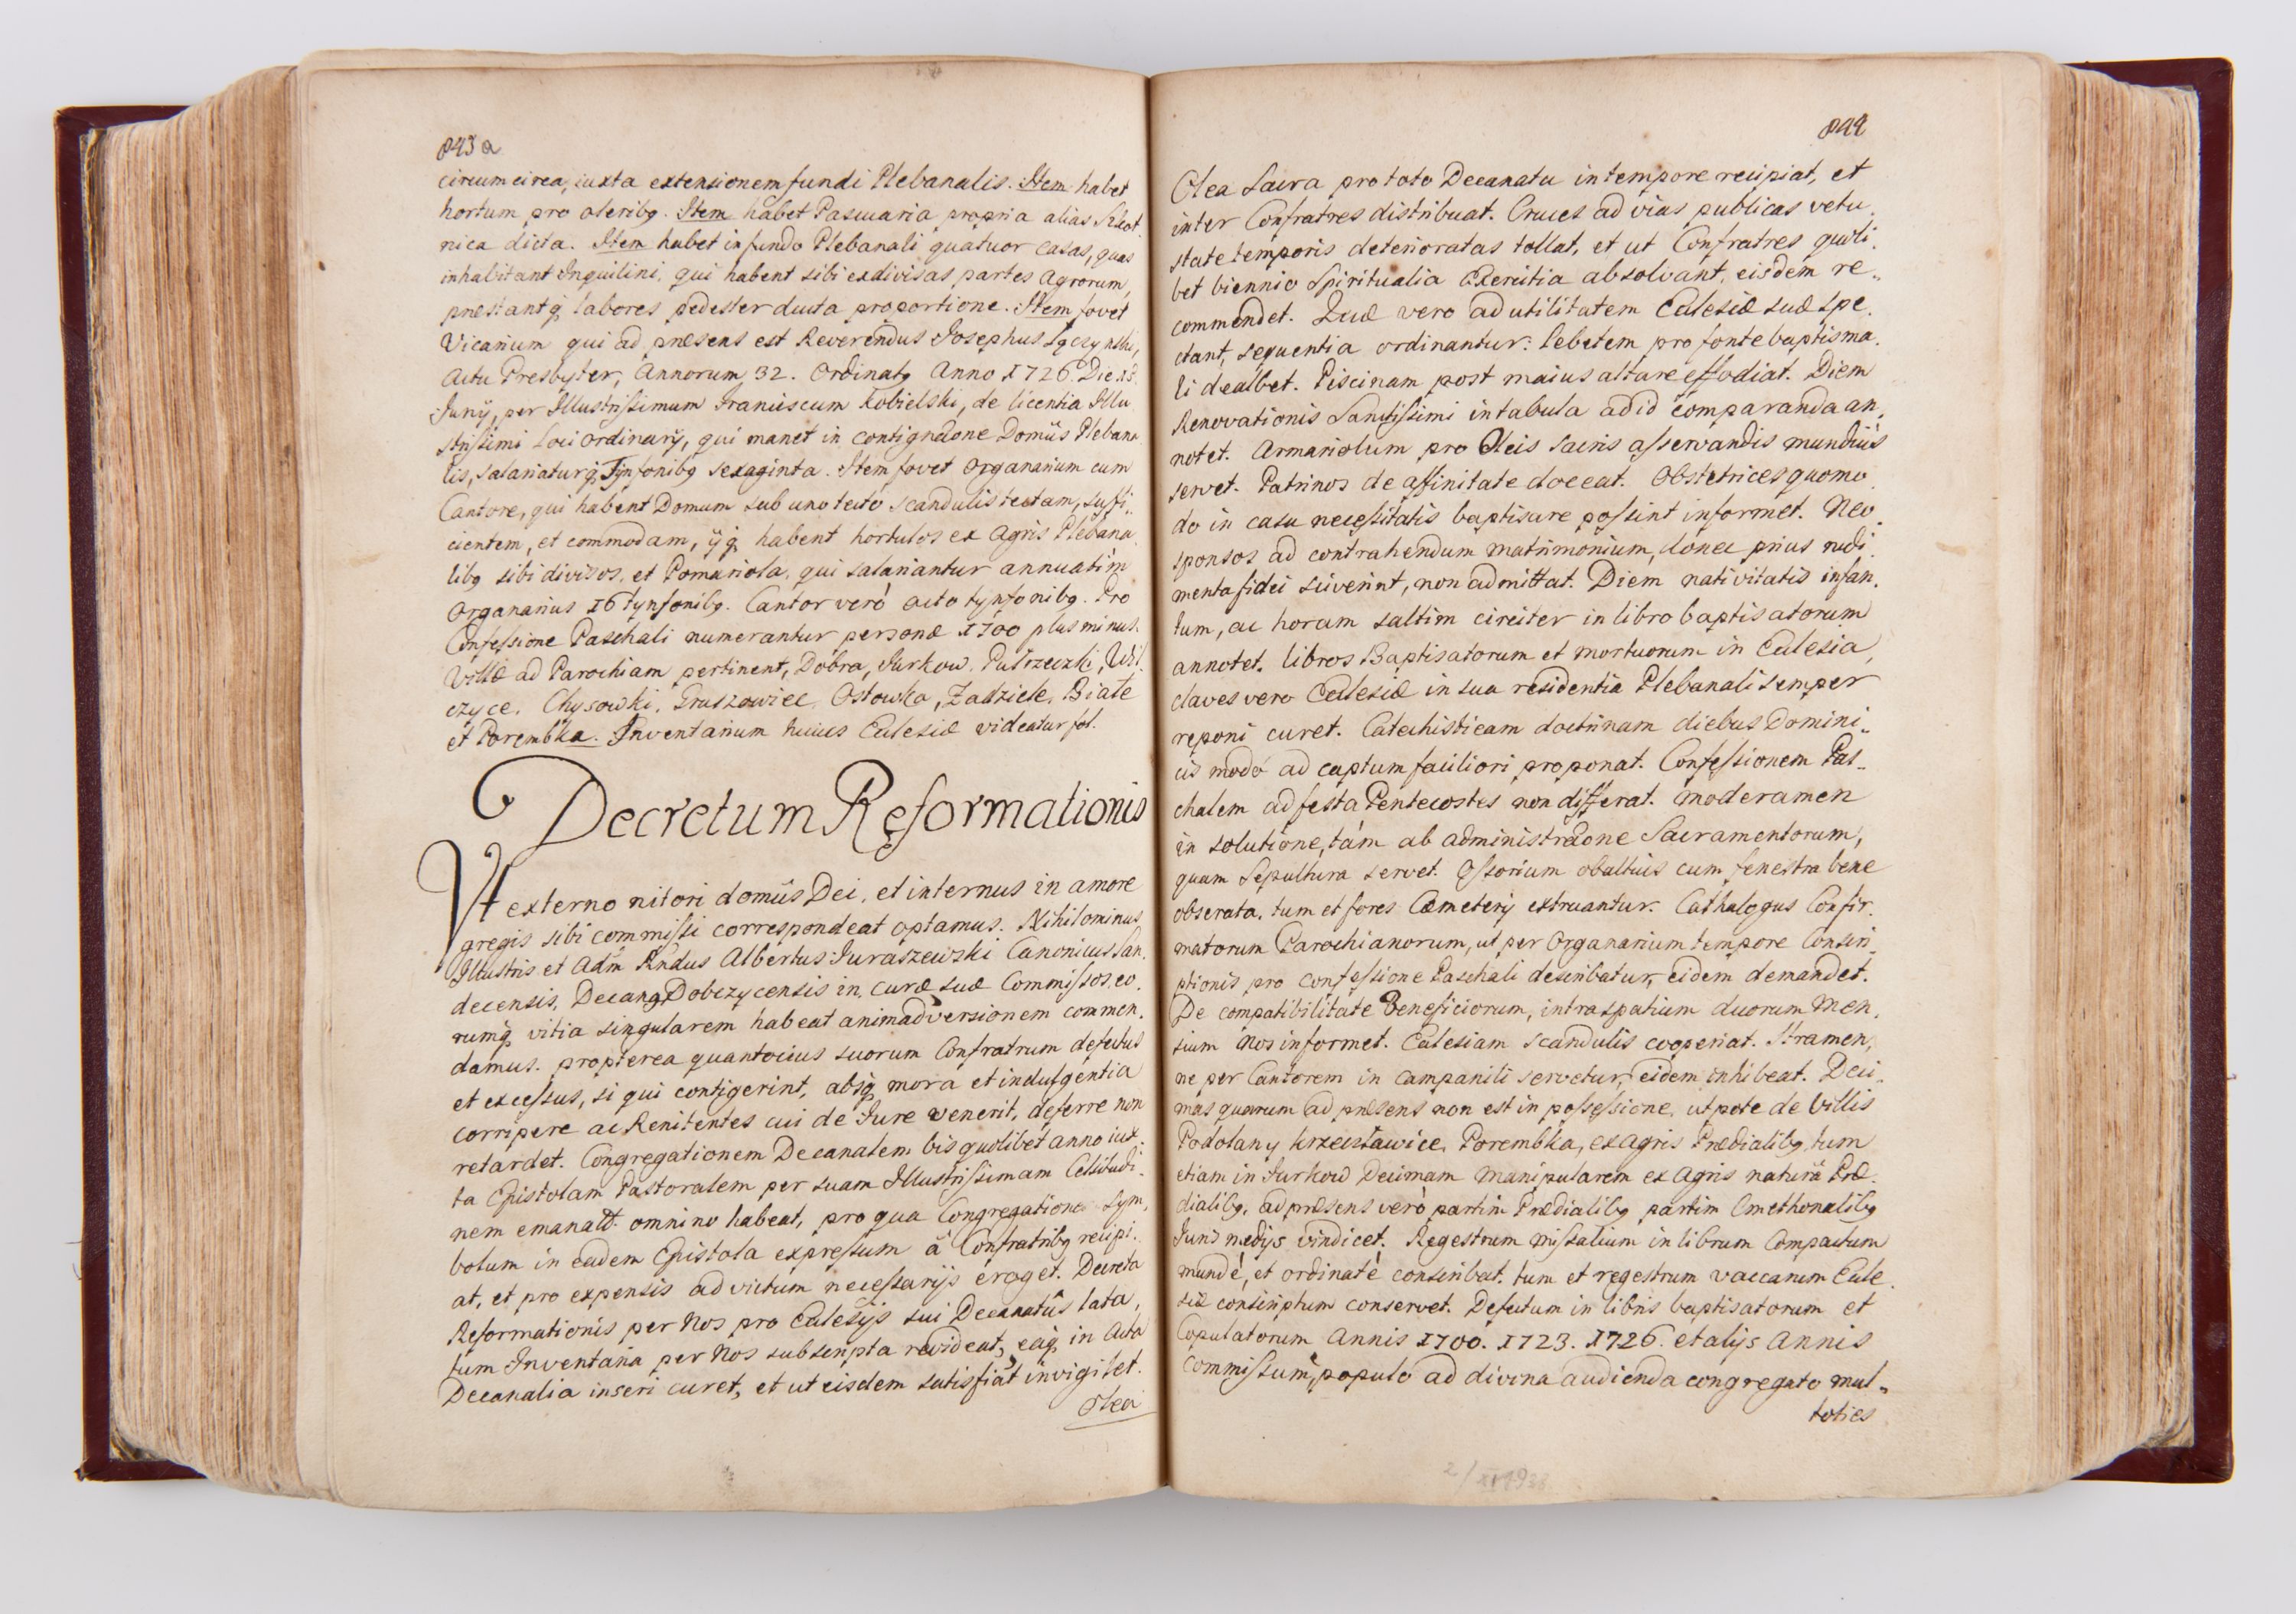 843 a
circumcirca, iuxta extensionem fundi Plebanalis. Item habet
hortum pro oleribq. Item habet Pascuaria propria alias Skot
nica dicta. Item habet in fundo Plebanali quatuor casas, quas
inhabitant Inquilini, qui habent sibi exdivisas partes Agrorum,
præstantq labores pedester ducta proportione. Item fovet
Vicarium qui ad præsens est Reverendus Josephus Łączynski,
Actu Presbyter, Annorum 32. Ordinatq Anno 1726. Die 15.
Junÿ, per Illustrissimum Franciscum Kobielski, de licentia Illu
strissimi Loci Ordinarÿ, qui manet in contignaone Domûs Plebana
lis, salariaturq Tynfonibq sexaginta. Item fovet Organarium cum
Cantore, qui habent Domum sub uno tecto scandulis tectam, suffi„
cientem, et commodam, ÿq habent hortulos ex Agris Plebana
libq sibi divisos, et Pomariola, qui salariantur annuatim
Organarius 16 tynfonibq. Cantor veró octo tynfonibq. Pro
Confessione Paschali numerantur personæ 1700 plus minus.
Villæ ad Parochiam pertinent, Dobra, Jurkow, Pułrzeczki, Wil
czyce, Chyszowki, Gruszowiec, Ostowka, Zadziele, Białe
et Porembka. Inventarium huius Ecclesiæ videatur fol.
Decretum Reformationis
Vt externo nitori domûs Dei, et internus in amore
gregis sibi commissi correspondeat optamus. Nihilominus
Illustris et Adm Rndus Albertus Juraszewski Canonicus San
decensis, Decanq Dobczycensis in curæ suæ Commissos, eo.
rumq vitia singularem habeat animadversionem commen.
damus. propterea quantocius suorum Confratrum defectus
et excessus, si qui contigerint, absq mora et indulgentia
corripere ac Renitentes cui de Jure venerit, deferre non
retardet. Congregationem Decanalem bis quolibet anno iux.
ta Epistolam Pastoralem per suam Illustrissimam Celsitudi.
nem emanatt. omnino habeat, pro qua Congregatione Sym,
bolum in eadem Epistola expressum â Confratribq recipi.
at, et pro expensis ad victum necessarijs eroget. Decreta
Reformationis per Nos pro Ecclesijs sui Decanatûs lata,
tum Inventaria per Nos subscripta revideat, eaq in Acta
Decanalia inseri curet, et ut eisdem satisfiat invigilet.
Olea
844
Olea Sacra pro toto Decanatu in tempore recipiat, et
inter Confratres distribuat. Cruces ad vias publicas vetu
state temporis deterioratas tollat, et ut Confratres quoli.
bet biennio Spiritualia Exercitia absolvant, eisdem re„
commendet. Quæ vero ad utilitatem Ecclesiæ suæ spe.
ctant, sequentia ordinantur: Lebetem pro fonte baptisma.
li dealbet. Piscinam post maius altare effodiat. Diem
Renovationis Sanctissimi in tabula ad id comparanda an,
notet. Armariolum pro Oleis Sacris asservandis mundius
servet. Patrinos de affinitate doceat. Obstetrices quomo.
do in casu necessitatis baptisare possint informet. Neo.
sponsos ad contrahendum matrimonium, donec prius rudi.
menta fidei sciverint, non admittat. Diem nativitatis infan.
tum, ac horam saltim circiter in libro baptisatorum
annotet. Libros Baptisatorum et mortuorum in Ecclesia,
claves vero Ecclesiæ in sua residentia Plebanali semper
reponi curet. Catechisticam doctrinam diebus Domini„
cis modó ad captum faciliori proponat. Confessionem Pas„
chalem ad festa Pentecostes non differat. Moderamen
in solutione, tám ab administraone Sacramentorum,
quam Sepultura servet. Ossorium obaltius cum fenestra bene
obserata, tum et fores Cæmeterÿ extruantur. Cathalogus Confir.
matorum Parochianorum, ut per Organarium tempore Conscri
ptionis pro confessione Paschali describatur, eidem demandet.
De compatibilitate Beneficiorum, intra spatium duorum Men.
sium Nos informet. Ecclesiam scandulis cooperiat. Stramen,
ne per Cantorem in campanili servetur, eidem inhibeat. Deci„
mas quarum ad præsens non est in possessione, utpote de Villis
Podolany Krzesławice, Porembka, ex agris Prædialibq, tum
etiam in Jurkow Decimam Manipularem ex Agris naturâ Præ.
dialibq, ad præsens veró partim Prædialibq partim Cmethonalibq
Juris medijs vindicet. Regestrum missalium in librum Compactum
mundé, et ordinaté conscribat. tum et regestrum vaccarum Eccle.
siæ conscriptum conservet. Defectum in libris baptisatorum et
Copulatorum Annis 1700. 1723. 1726. et alijs Annis
commissum, populo ad divina audienda congregato mul„
toties